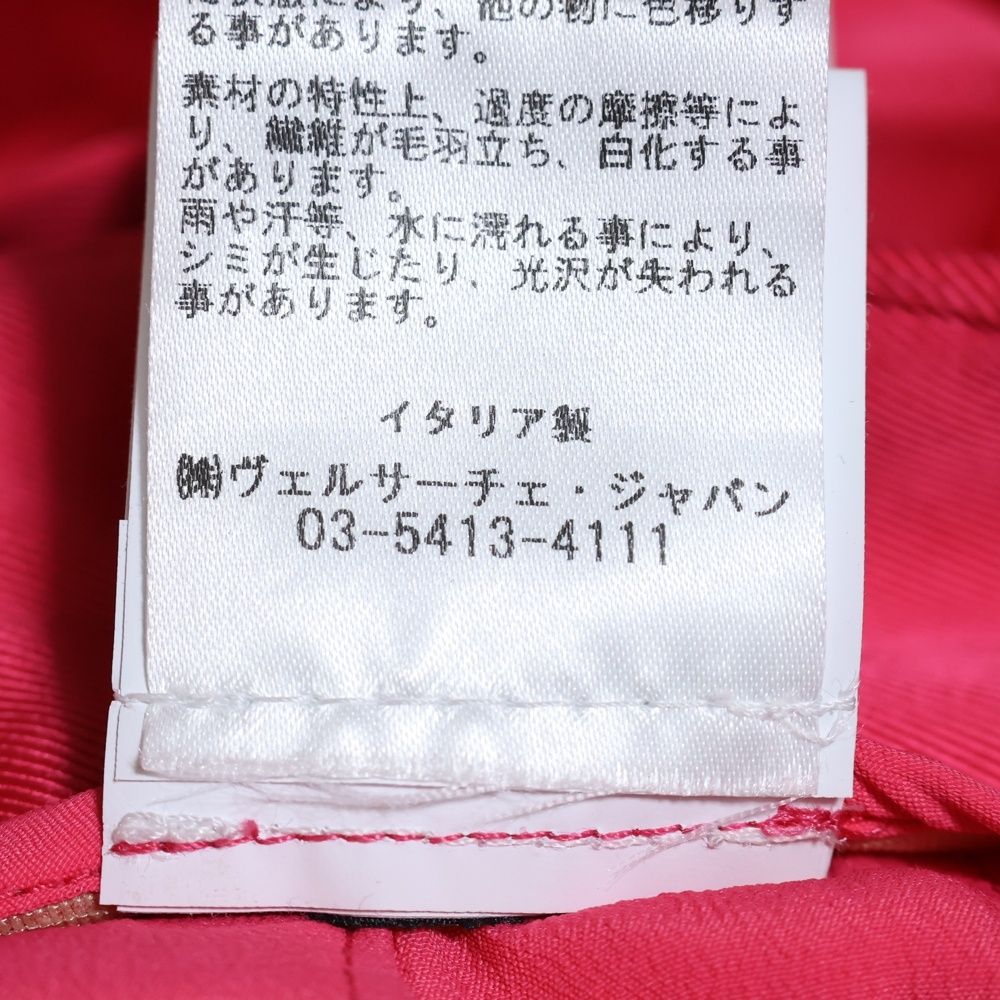 により、他の物に色移りす
る事があります。
素材の特性上、過度の摩擦等によ
り、繊維が毛羽立ち、白化する事
があります。
雨や汗等、水に濡れる事により、
シミが生じたり、光沢が失われる
事があります。
イタリア製
㈱ヴェルサーチェ・ジャパン
03-5413-4111